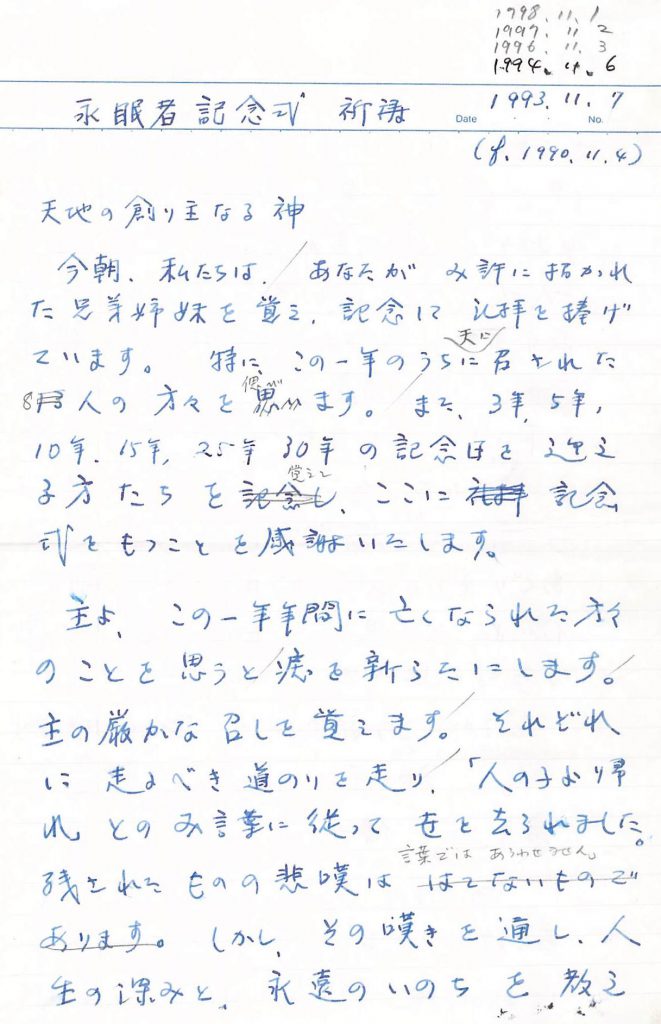 1998.11.1
1997.11 2
1996.11.3
1994.11.6
永眠者記念式 祈祷
Date 1993.11.7 No.
(cf. 1990.11.4)
天地の創り主なる神
今朝、私たちは、あなたが み許に招かれ
た兄弟姉妹を覚え、記念して 礼拝を捧げ
天に
ています。 特に、この一年のうちに召された
偲び
8人の 方々を ます。 また、3年、5年、
10年、15年、25年 30年 の記念日を 迎え
覚えて
る方たちを 記念し、ここに 礼拝 記念
式をもつことを感謝いたします。
主よ、この一年年間に亡くなられた方々
のことを思うと涙を新らたにします。
主の厳かな召しを覚えます。それぞれ
に 走るべき道のりを走り、「人の子より帰
れ」とのみ言葉に従って 世を去られました。
言葉では あらわせません。
残されたものの悲嘆は はてないもので
あります。しかし、その嘆きを通し、人
生の深みと、永遠のいのちを教え